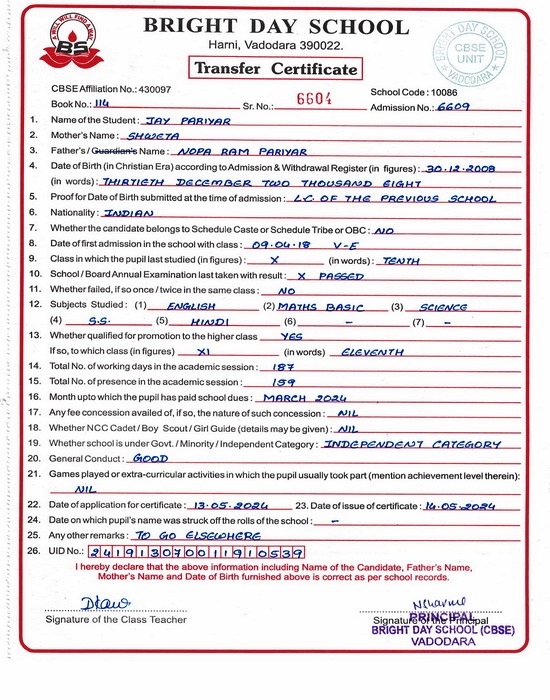 A WILL WILL FIND A WAY
BS
BRIGHT DAY SCHOOL
Harni, Vadodara 390022.
Transfer Certificate
BRIGHT DAY SCHOOL
CBSE
UNIT
VADODARA
CBSE Affiliation No.: 430097 School Code : 10086
Book No.: 114 Sr. No.: 6604 Admission No.: 6609
1. Name of the Student : JAY PARIYAR
2. Mother's Name : SHWETA
3. Father's / Guardian's Name : NOPA RAM PARIYAR
4. Date of Birth (in Christian Era) according to Admission & Withdrawal Register (in figures) : 30.12.2008
(in words) : THIRTIETH DECEMBER TWO THOUSAND EIGHT
5. Proof for Date of Birth submitted at the time of admission : L.C. OF THE PREVIOUS SCHOOL
6. Nationality : INDIAN
7. Whether the candidate belongs to Schedule Caste or Schedule Tribe or OBC : NO
8. Date of first admission in the school with class : 09.04.18 V-E
9. Class in which the pupil last studied (in figures) : X (in words) : TENTH
10. School / Board Annual Examination last taken with result : X PASSED
11. Whether failed, if so once / twice in the same class : NO
12. Subjects Studied : (1) ENGLISH (2) MATHS BASIC (3) SCIENCE
(4) S.S. (5) HINDI (6) - (7) -
13. Whether qualified for promotion to the higher class YES
If so, to which class (in figures) XI (in words) ELEVENTH
14. Total No. of working days in the academic session : 187
15. Total No. of presence in the academic session : 159
16. Month upto which the pupil has paid school dues : MARCH 2024
17. Any fee concession availed of, if so, the nature of such concession : NIL
18. Whether NCC Cadet / Boy Scout / Girl Guide (details may be given) : NIL
19. Whether school is under Govt. / Minority / Independent Category : INDEPENDENT CATEGORY
20. General Conduct : GOOD
21. Games played or extra-curricular activities in which the pupil usually took part (mention achievement level therein):
NIL
22. Date of application for certificate : 13.05.2024 23. Date of issue of certificate : 14.05.2024
24. Date on which pupil's name was struck off the rolls of the school : -
25. Any other remarks : TO GO ELSEWHERE
26. UID No.: 241913070011910539
I hereby declare that the above information including Name of the Candidate, Father's Name,
Mother's Name and Date of Birth furnished above is correct as per school records.
Signature of the Class Teacher Signature of the Principal
PRINCIPAL
BRIGHT DAY SCHOOL (CBSE)
VADODARA